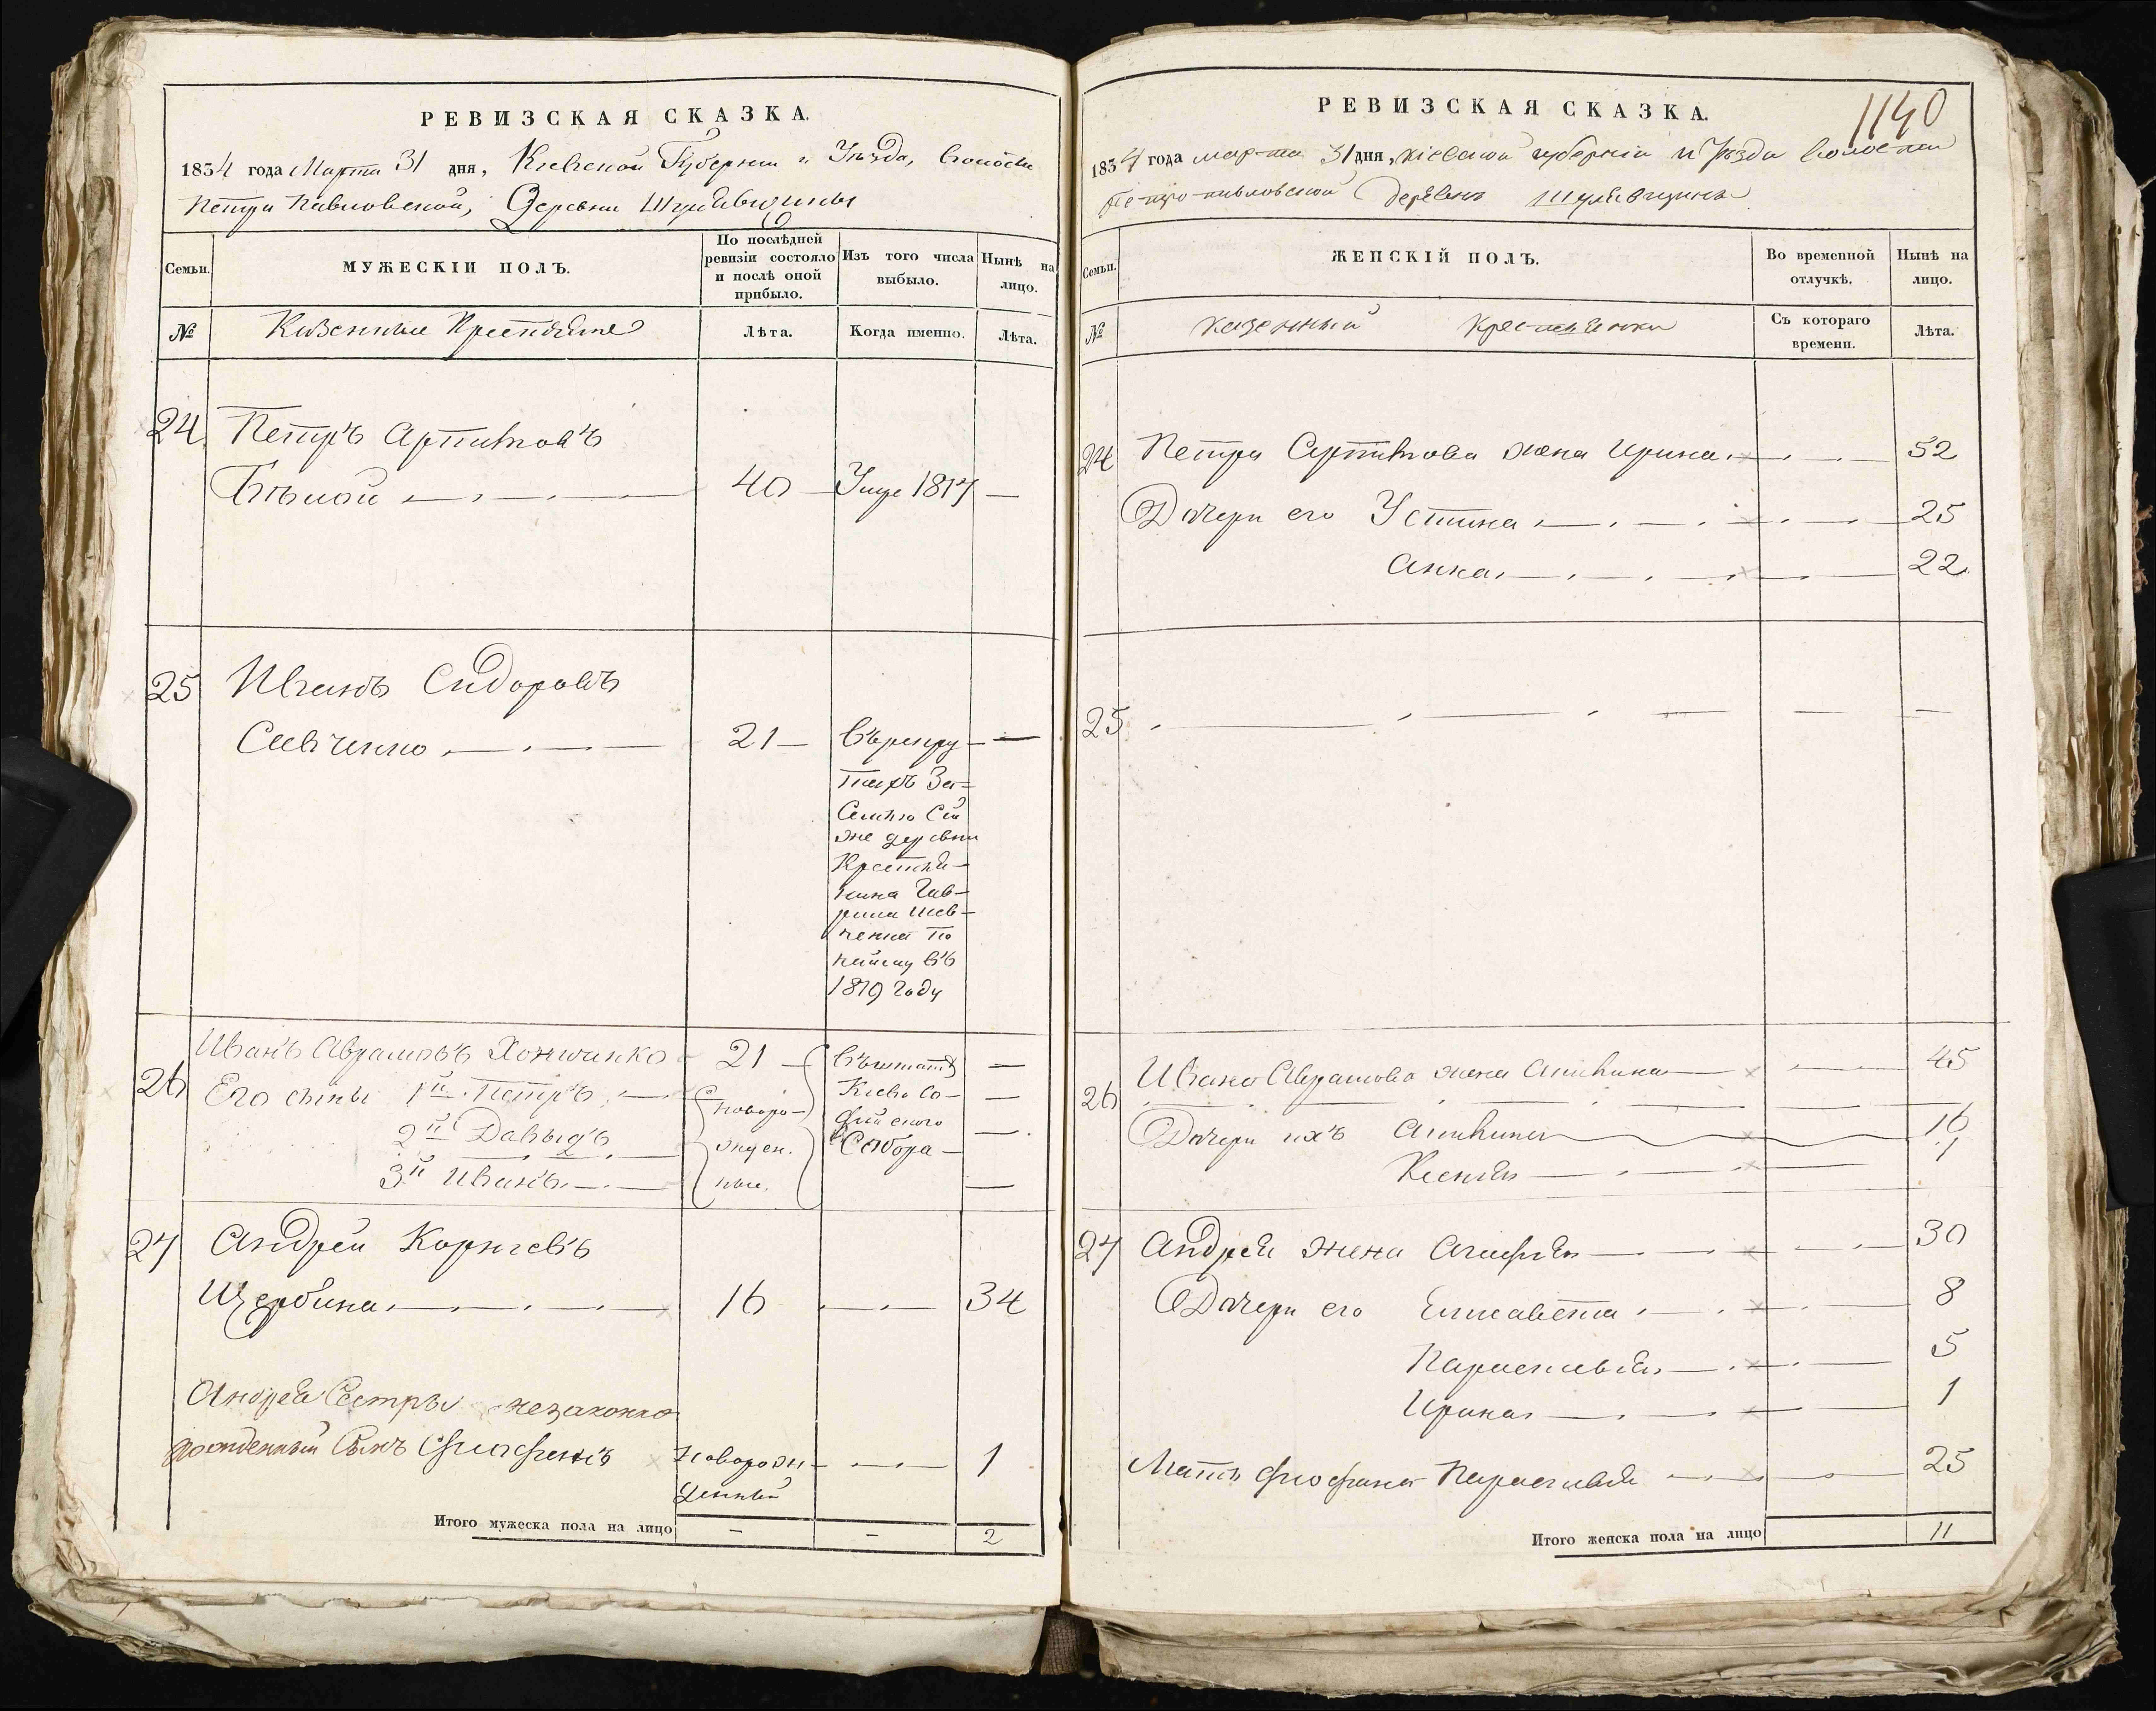 РЕВИЗСКАЯ СКАЗКА.
1834 года Марта 31 дня, Кіевской Губерніи и Уѣзда, волости
Петро Павловской, Деревни Шулявщины
Семьи.
МУЖЕСКІЙ ПОЛЪ.
По послѣдней ревизіи состояло и послѣ оной прибыло.
Изъ того числа выбыло.
Нынѣ на лицо.
№
Казенные Крестьяне
Лѣта.
Когда именно.
Лѣта.
24
Петръ Артимовъ
Бѣлой 40 Уме 1817
25
Иванъ Сидоровъ
Савченко 21 Въ рекру
тахъ За
Семью Сей
же деревни
Крестья
нина Гав
рила Шев
ченка по
найму въ
1819 году
26
Иванъ Аврамовъ 21 Въ штатъ
Его сыны 1й Петръ новоро Кіево Со
2й Давыдъ жден. фійскаго
3й Иванъ ные. Собора
27
Андрей Корнѣевъ
Щербина 16 34
Андрея Сестры незаконно
рожденный Сынъ новорож
денный 1
Итого мужеска пола на лицо 2
РЕВИЗСКАЯ СКАЗКА.
1140
1834 года марта 31 дня, Кіевской губерніи и Уѣзда волости
Петро-павловской Деревни Шулявщины
Семьи.
ЖЕНСКІЙ ПОЛЪ.
Во временной отлучкѣ.
Нынѣ на лицо.
№
Казенныи Крестьянки
Съ котораго времени.
Лѣта.
24 Петра Артимова жена Ирина 52
Дочери его Устина 25
Анна 22
25
26 Ивана Аврамова жена 45
Дочери ихъ 16
Ксенія 1
27 Андрея жена Агафія 30
Дочери его Елисавета 8
Параскевія 5
Ирина 1
Мать Параскевія 25
Итого женска пола на лицо 11